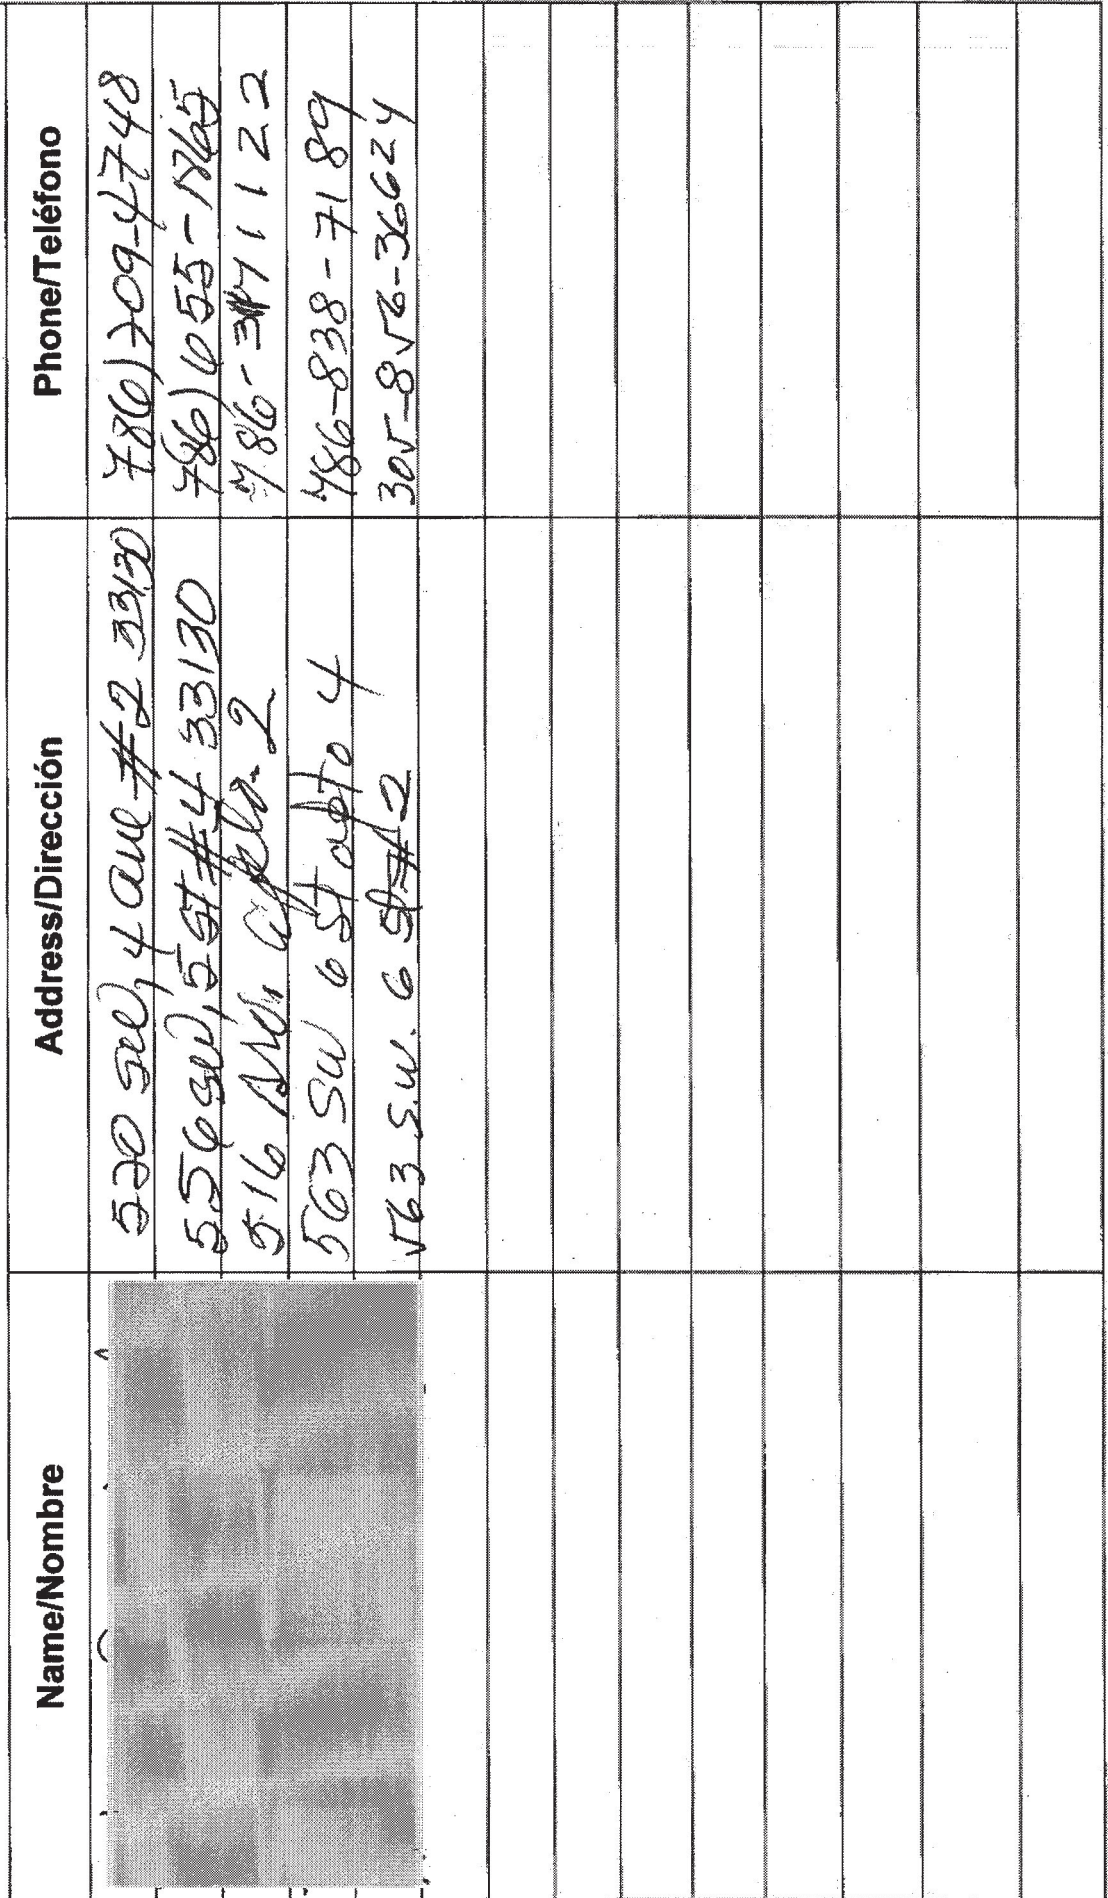 Name/Nombre Address/Dirección Phone/Teléfono
520 SW, 4 Ave #2 33130 786) 709-4748
556 SW, 5 St #4 33130 786) 655-1865
516 2 786- 1122
563 SW 6 St apto 4 786-838-7189
563 S.W. 6 St #2 305-856-36624